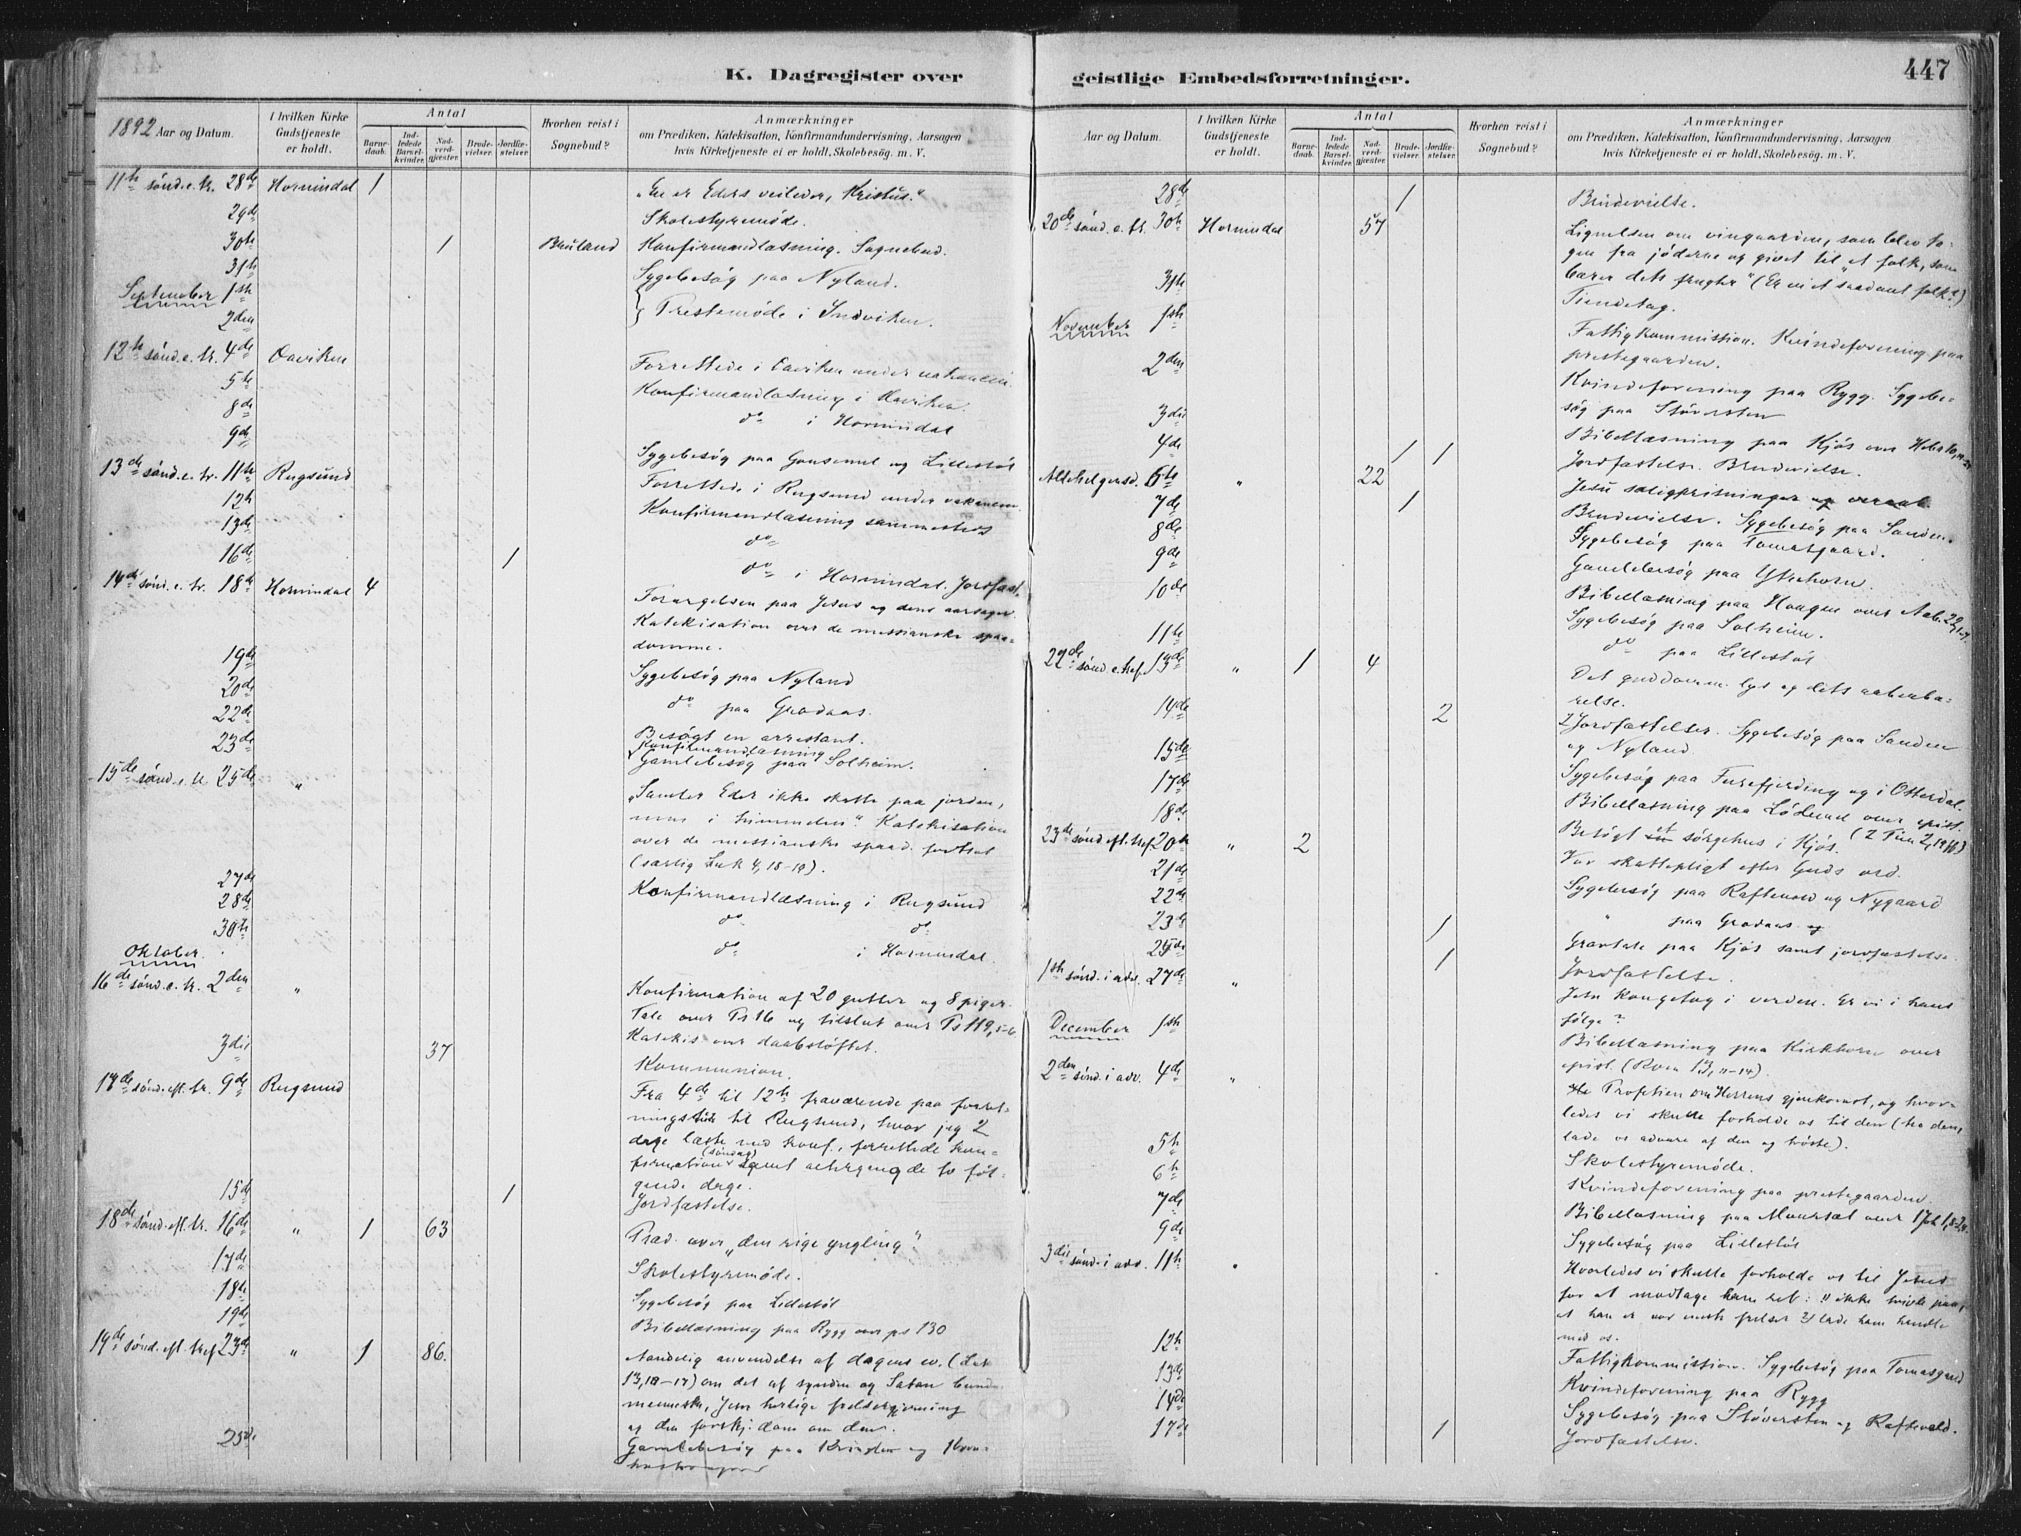 K. Dagregister over
1892 Aar og Datum.
I hvilken Kirke Gudstjeneste er holdt.
Antal
Barnedaab.
Indledede Barselkvinder.
Nadverdgjester.
Brudevielser.
Jordfæstelser.
Hvorhen reist i Sognebud?
Anmærkninger
om Prædiken, Katekisation, Konfirmandundervisning, Aarsagen
hvis Kirketjeneste ei er holdt, Skolebesøg. m. V.
11te sønd. e. tr. 28de Hornindal 1 "En er Eders veileder, Kristus."
29de Skolestyremøde.
30te 1 Konfirmandlæsning. Sognebud.
31te Sygebesøg paa Nyland.
September 1ste
2den Prestemøde i Indviken.
12te sønd. e. tr. 4de Daviken Forrettede i Daviken under
5te Konfirmandlæsning i Daviken.
8de do i Hornindal
9de Sygebesøg paa og Lillestøl
13de sønd. e. tr. 11te Rugsund Forrettede i Rugsund under vakansen
12te Konfirmandlæsning sammesteds
13de do
16de 1 do i Hornindal. Jordfæst.
14de sønd. e. tr. 18de Hornindal 4 Forargelsen paa Jesus og dens aarsager.
Katekisation over de messianske spaa-
domme.
19de Sygebesøg paa Nyland
20de do paa Grodaas.
22de Besøgt en arrestant.
23de Konfirmandlæsning
Gamlebesøg paa Solheim.
15de sønd. e. tr. 25de " "Samler Eder ikke skatte paa jorden,
men i himmelen". Katekisation
over de messianske spaad. fortsat
(særlig Luk 4, 18-19).
27de Konfirmandlæsning i Rugsund
28de do do
30te do i Hornindal.
Oktober
16de sønd. e. tr. 2den " Konfirmation af 20 gutter og 8 piger.
Tale over Ps 16 og tilslut over Ps 119, 5-6
Katekis over daabsløftet.
3die 37 Kommunion.
17de sønd. ef. tr. 9de Rugsund Fra 4de til 12te fraværende paa forret-
ningstur til Rugsund, hvor jeg 2
dage læste med konf., forrettede kon-
firmation (søndag) samt altergang de to føl-
gende dage.
15de 1 Jordfæstelse.
18de sønd. ef. tr. 16de " 1 63 Præd. over "den rige yngling".
17de Skolestyremøde.
18de Sygebesøg paa Lillestøl
19de Bibellæsning paa Rygg over ps 130
19de sønd. ef. tref 23de " 1 86. Aandelig anvendelse af dagens ev. (Luk
13, 10-17) om det af synden og Satan bundne
menneske, Jesu herlige frelsergjerning
og den forskj. dom om den.
25de Gamlebesøg paa og
geistlige Embedsforretninger.
447
Aar og Datum.
I hvilken Kirke Gudstjeneste er holdt.
Antal
Barnedaab.
Indledede Barselkvinder.
Nadverdgjester.
Brudevielser.
Jordfæstelser.
Hvorhen reist i Sognebud?
Anmærkninger
om Prædiken, Katekisation, Konfirmandundervisning, Aarsagen
hvis Kirketjeneste ei er holdt, Skolebesøg. m. V.
28de 1 Brudevielse.
20de sønd. e. tr. 30te Hornindal 57 Lignelsen om vingaarden, som blev ta-
gen fra jøderne og givet til "et folk, som
bærer dets frugter" (Er vi et saadant folk?)
31te Tiendetag.
November 1ste Fattigkommission. Kvindeforening paa
prestegaarden.
2den Kvindeforening paa Rygg. Sygebe-
søg paa Støversten
3die Bibellæsning paa Kjøs over Hebr 10,
4de 1 1 Jordfæstelse. Brudevielse.
Allehelgensd. 6te " 22 Jesu saligprisninger
7de 1 Brudevielse. Sygebesøg paa Sanden.
8de Sygebesøg paa Tomasgaard.
9de Gamlebesøg paa Ytrehorn.
10de Bibellæsning paa Haugen over Aab.
Sygebesøg paa Solheim.
11te do paa Lillestøl
22de sønd. e. tref. 13de " 1 4 Det guddomm. lys og dets aabenba-
relse.
14de 2 2 Jordfæstelser. Sygebesøg paa Sanden
og Nyland.
15de Sygebesøg paa Furefjerding og i Otterdal
17de Bibellæsning paa over epist.
18de Besøgt et sørgehus i Kjøs. (2 Tim 2,
23de sønd. eft. tref. 20de " 2 Vor skattepligt efter Guds ord.
21de Sygebesøg paa Raftevold og Nygaard
22de " paa Grodaas
23de 1 Gravtale paa Kjøs samt jordfæstelse.
25de 1 Jordfæstelse.
1ste sønd. i adv. 27de " Jesu kongetog i verden. Er vi i hans
følge?
December 1ste Bibellæsning paa Kirkhorn over
epist. (Rom 13, 11-14).
2den sønd. i adv. 4de " Profetien om Herrens gjenkomst, og hvor-
ledes vi skulle forholde os til den (tro den,
lade os advare af den og trøste).
5te Skolestyremøde.
6te Kvindeforening paa prestegaarden.
7de Bibellæsning paa over 1 Joh 1,
9de Sygebesøg paa Lillestøl
3die sønd. i adv. 11te " Hvorledes vi skulle forholde os til Jesus
for at modtage ham ret: 1) ikke tvivle paa,
at han er vor eneste frelser 2) lade ham handle
med os.
12te Fattigkommission. Sygebesøg paa Tomasgaard
13de Kvindeforening paa Rygg
14de Sygebesøg paa Støversten og Raftevold.
17de 1 Jordfæstelse.